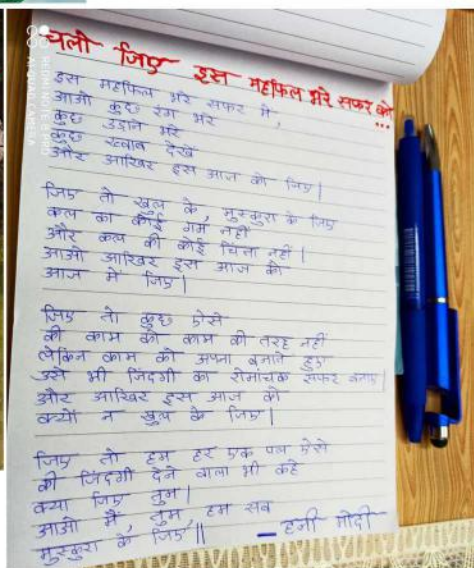 चलो जिए इस महफिल भरे सफर को
...
इस महफिल भरे सफर में,
आओ कुछ रंग भरे
कुछ उड़ाने भरे
कुछ ख्वाब देखें
और आखिर इस आज को जिए|
जिए तो खुल के, मुस्कुरा के जिए
कल का कोई गम नहीं
और कल की कोई चिंता नहीं |
आओ आखिर इस आज को
आज में जिए|
जिए तो कुछ ऐसे
की काम को काम की तरह नहीं
लेकिन काम को अपना बनाते हुए
उसे भी जिंदगी का रोमांचक सफर बनाए|
और आखिर इस आज को
क्यों न खुल के जिए|
जिए तो हम हर एक पल ऐसे
की जिंदगी देने वाला भी कहे
क्या जिए तुम|
आओ मैं, तुम, हम सब
मुस्कुरा के जिए||
- हनी मोदी
REDMI NOTE 8 PRO
AI QUAD CAMERA